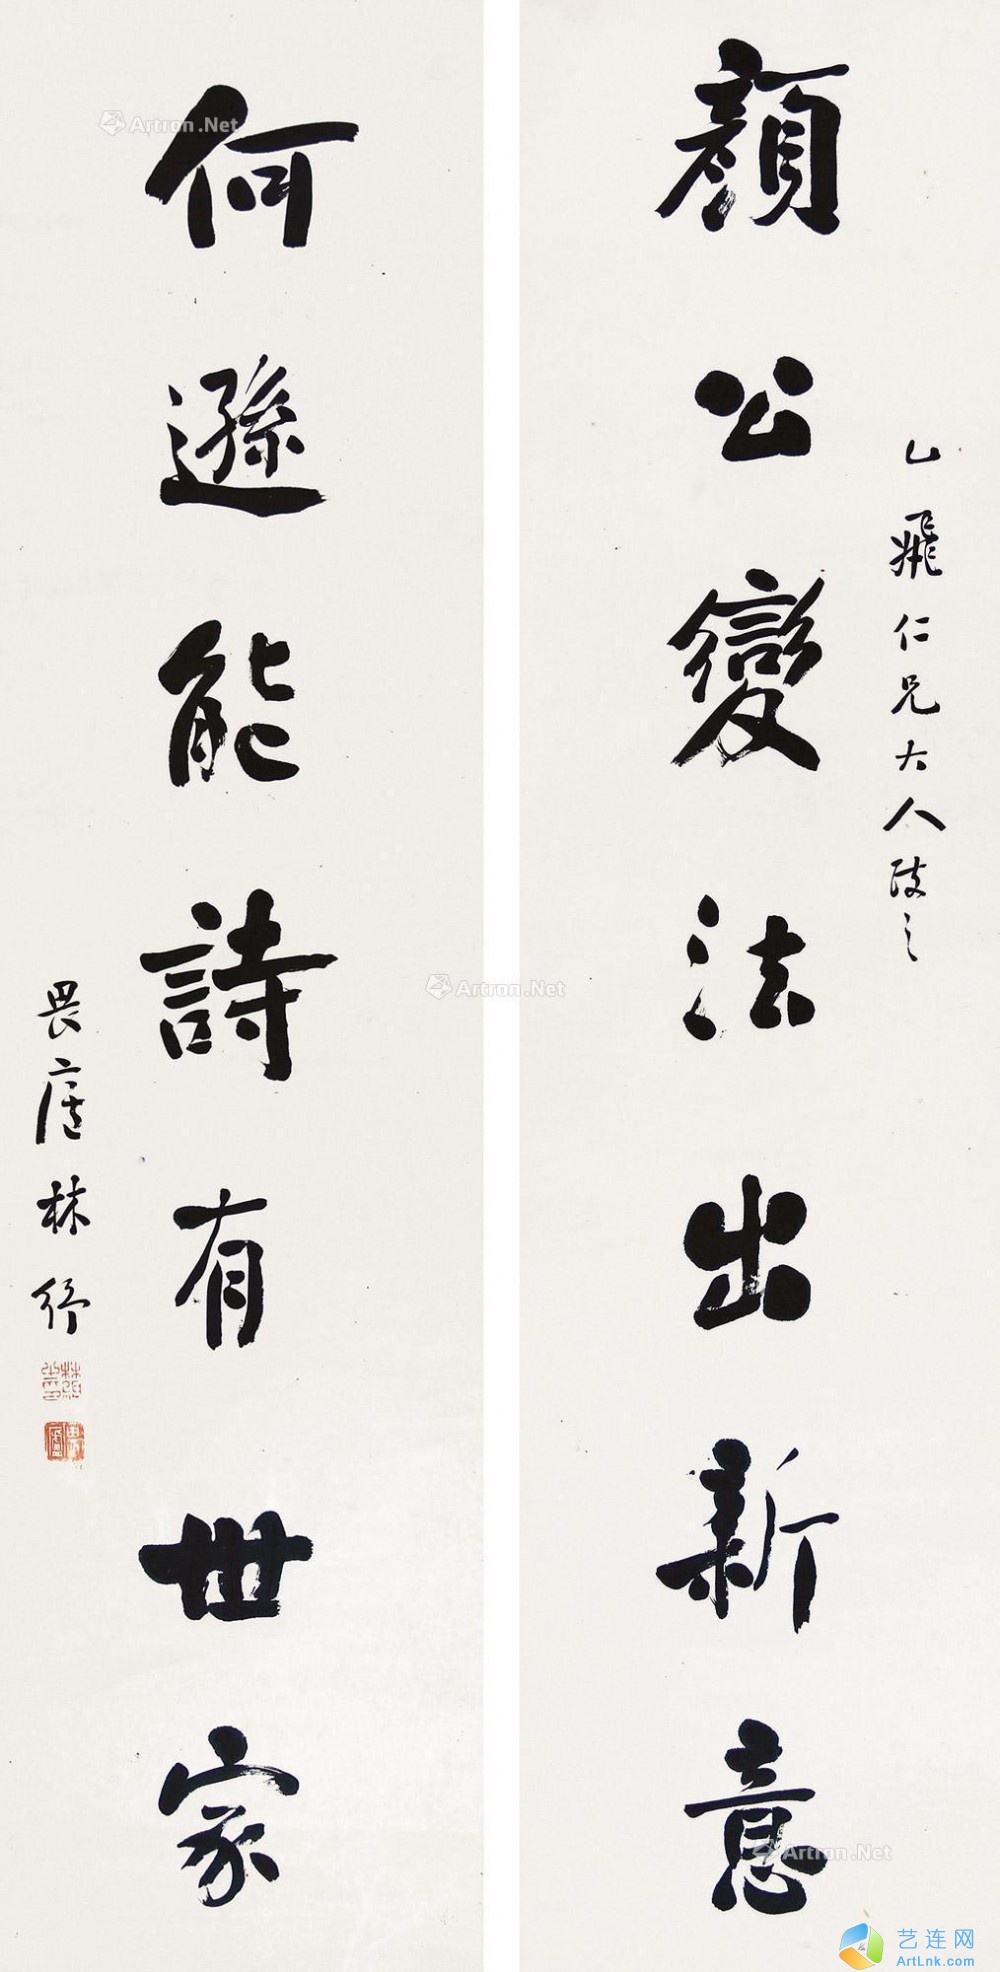 顔公變法出新意
乙飛仁兄大人政之
何遜能詩有世家
畏廬林紓
林紓
畏廬
Artron.Net
Artron.Net
Artron.Net
艺连网
ArtLnk.com